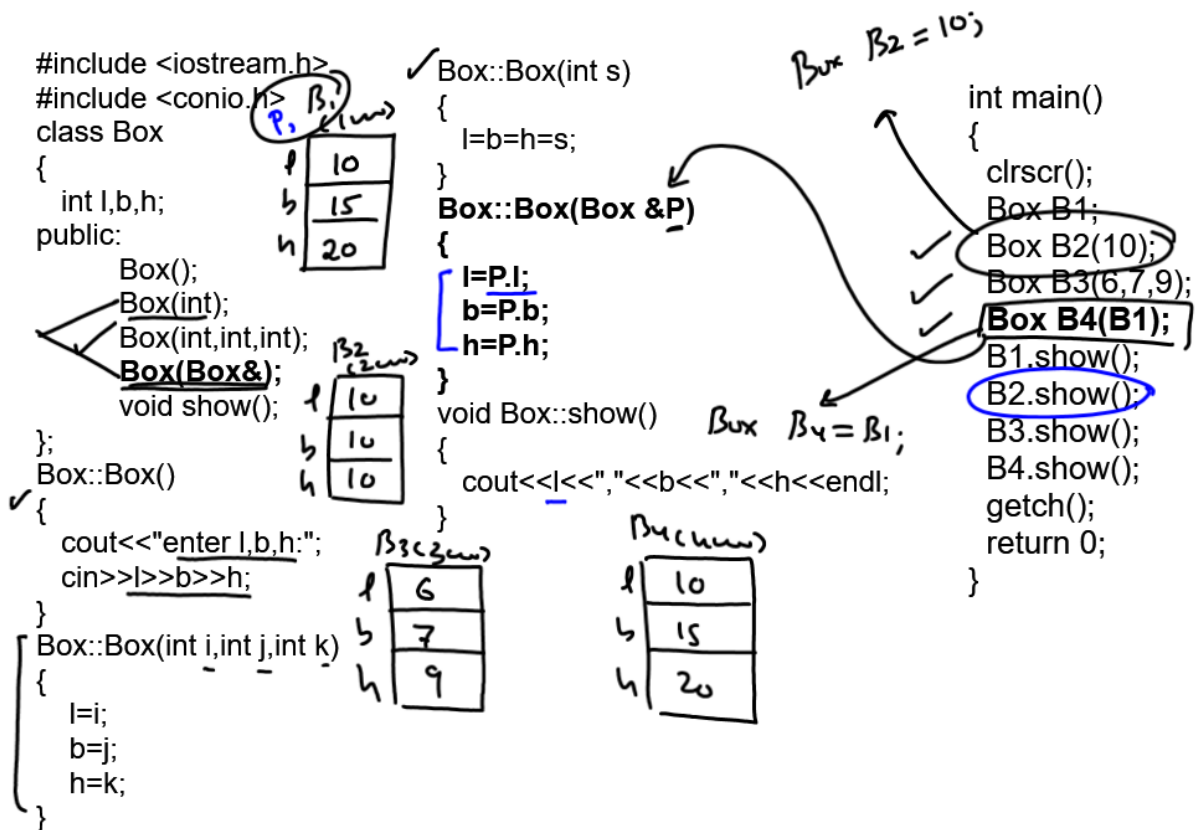 #include <iostream.h>
#include <conio.h>
class Box
{
int l,b,h;
public:
Box();
Box(int);
Box(int,int,int);
Box(Box&);
void show();
};
Box::Box()
{
cout<<"enter l,b,h:";
cin>>l>>b>>h;
}
Box::Box(int i,int j,int k)
{
l=i;
b=j;
h=k;
}
P, B1
l 10
b 15
h 20
B2
l 10
b 10
h 10
Box::Box(int s)
{
l=b=h=s;
}
Box::Box(Box &P)
{
l=P.l;
b=P.b;
h=P.h;
}
void Box::show()
{
cout<<l<<","<<b<<","<<h<<endl;
}
B3
l 6
b 7
h 9
B4
l 10
b 15
h 20
Box B2=10;
Box B4=B1;
int main()
{
clrscr();
Box B1;
Box B2(10);
Box B3(6,7,9);
Box B4(B1);
B1.show();
B2.show();
B3.show();
B4.show();
getch();
return 0;
}